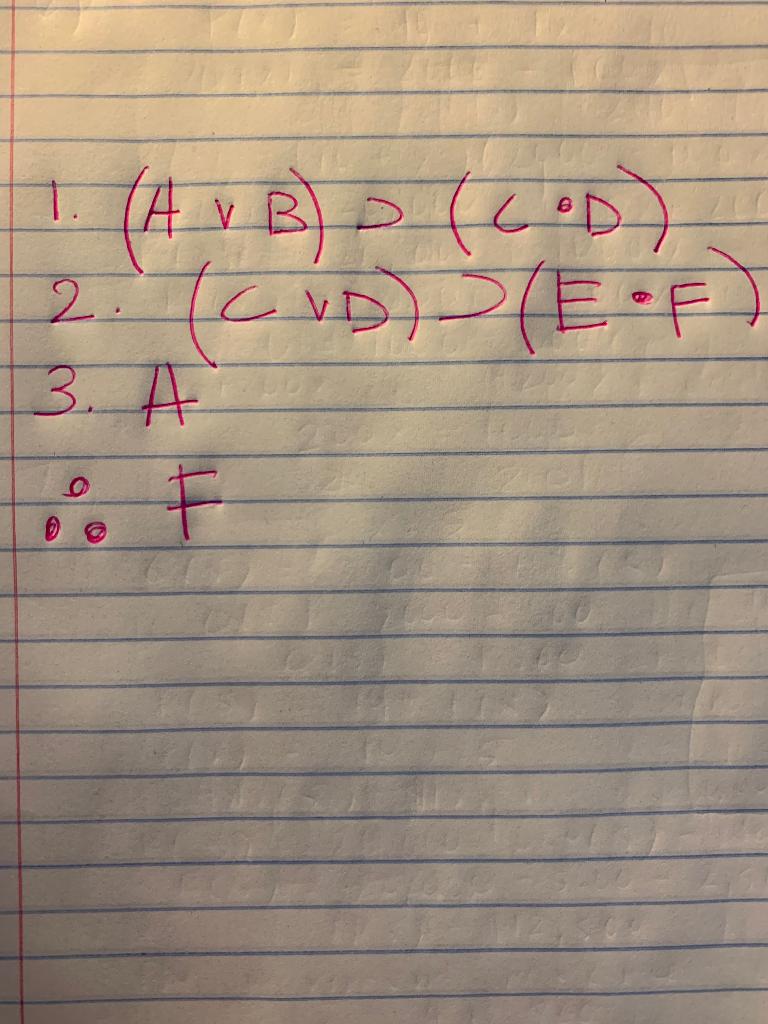 1. (A v B) ⊃ (C • D)
2. (C v D) ⊃ (E • F)
3. A
∴ F